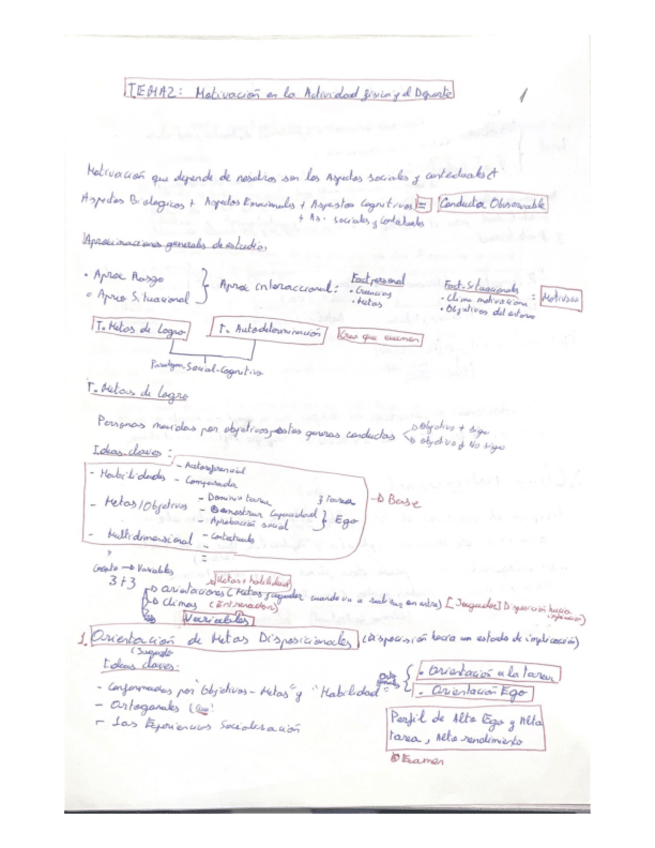 TEMA2: Motivación en la Actividad física y el Deporte
1
Motivación que depende de nosotros son los Aspectos sociales y contextuales
Aspectos Biologicos + Aspectos Emocionales + Aspectos Cognitivos = Conducta Observable
+ As. sociales y Contextuales
Aproximaciones generales de estudio:
• Aprox Rasgo
• Aprox Situacional
Aprox interaccional:
Fact personal
• Creencias
• Metas
Fact. Situacionales
• Clima motivacional
• Objetivos del entorno
= Motivos
T. Metas de Logro
T. Autodeterminación
Creo que examen
Paradigm. Social-Cognitivo
T. Metas de Logro
Personas movidas por objetivos, estos generan conductas
objetivo + sigo
objetivo No sigo
Ideas claves:
- Habilidades
- Autoreferencial
- Comparada
- Metas/Objetivos
- Dominio tarea
- Demostrar Capacidad
- Aprobación social
} Tarea
} Ego
→ Base
- Multidimensional
- Contextuales
→ Variables
3+3
Metas + habilidad
orientaciones (Metas jugador cuando va a realizar en entre) [Jugador] Disposición hacia implicación)
Climas (Entrenador)
Variables
1. Orientación de Metas Disposicionales (Disposición hacia un estado de implicación)
(Jugador
Ideas claves:
- Conformadas por "Objetivos - Metas" y "Habilidad"
• Orientación a la tarea
• Orientación Ego
- Ortogonales
- Las Experiencias Socialización
Perfil de Alto Ego y Alta
tarea, Alto rendimiento
Examen